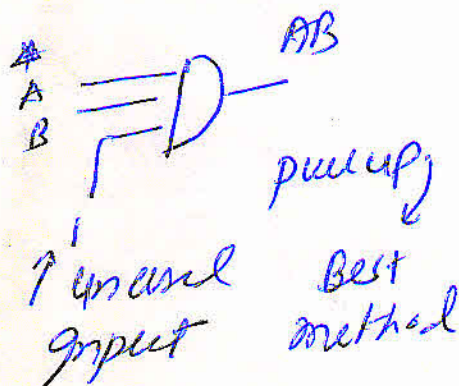 AB
A
B
pull up,
1
↑ unused
input
Best
method